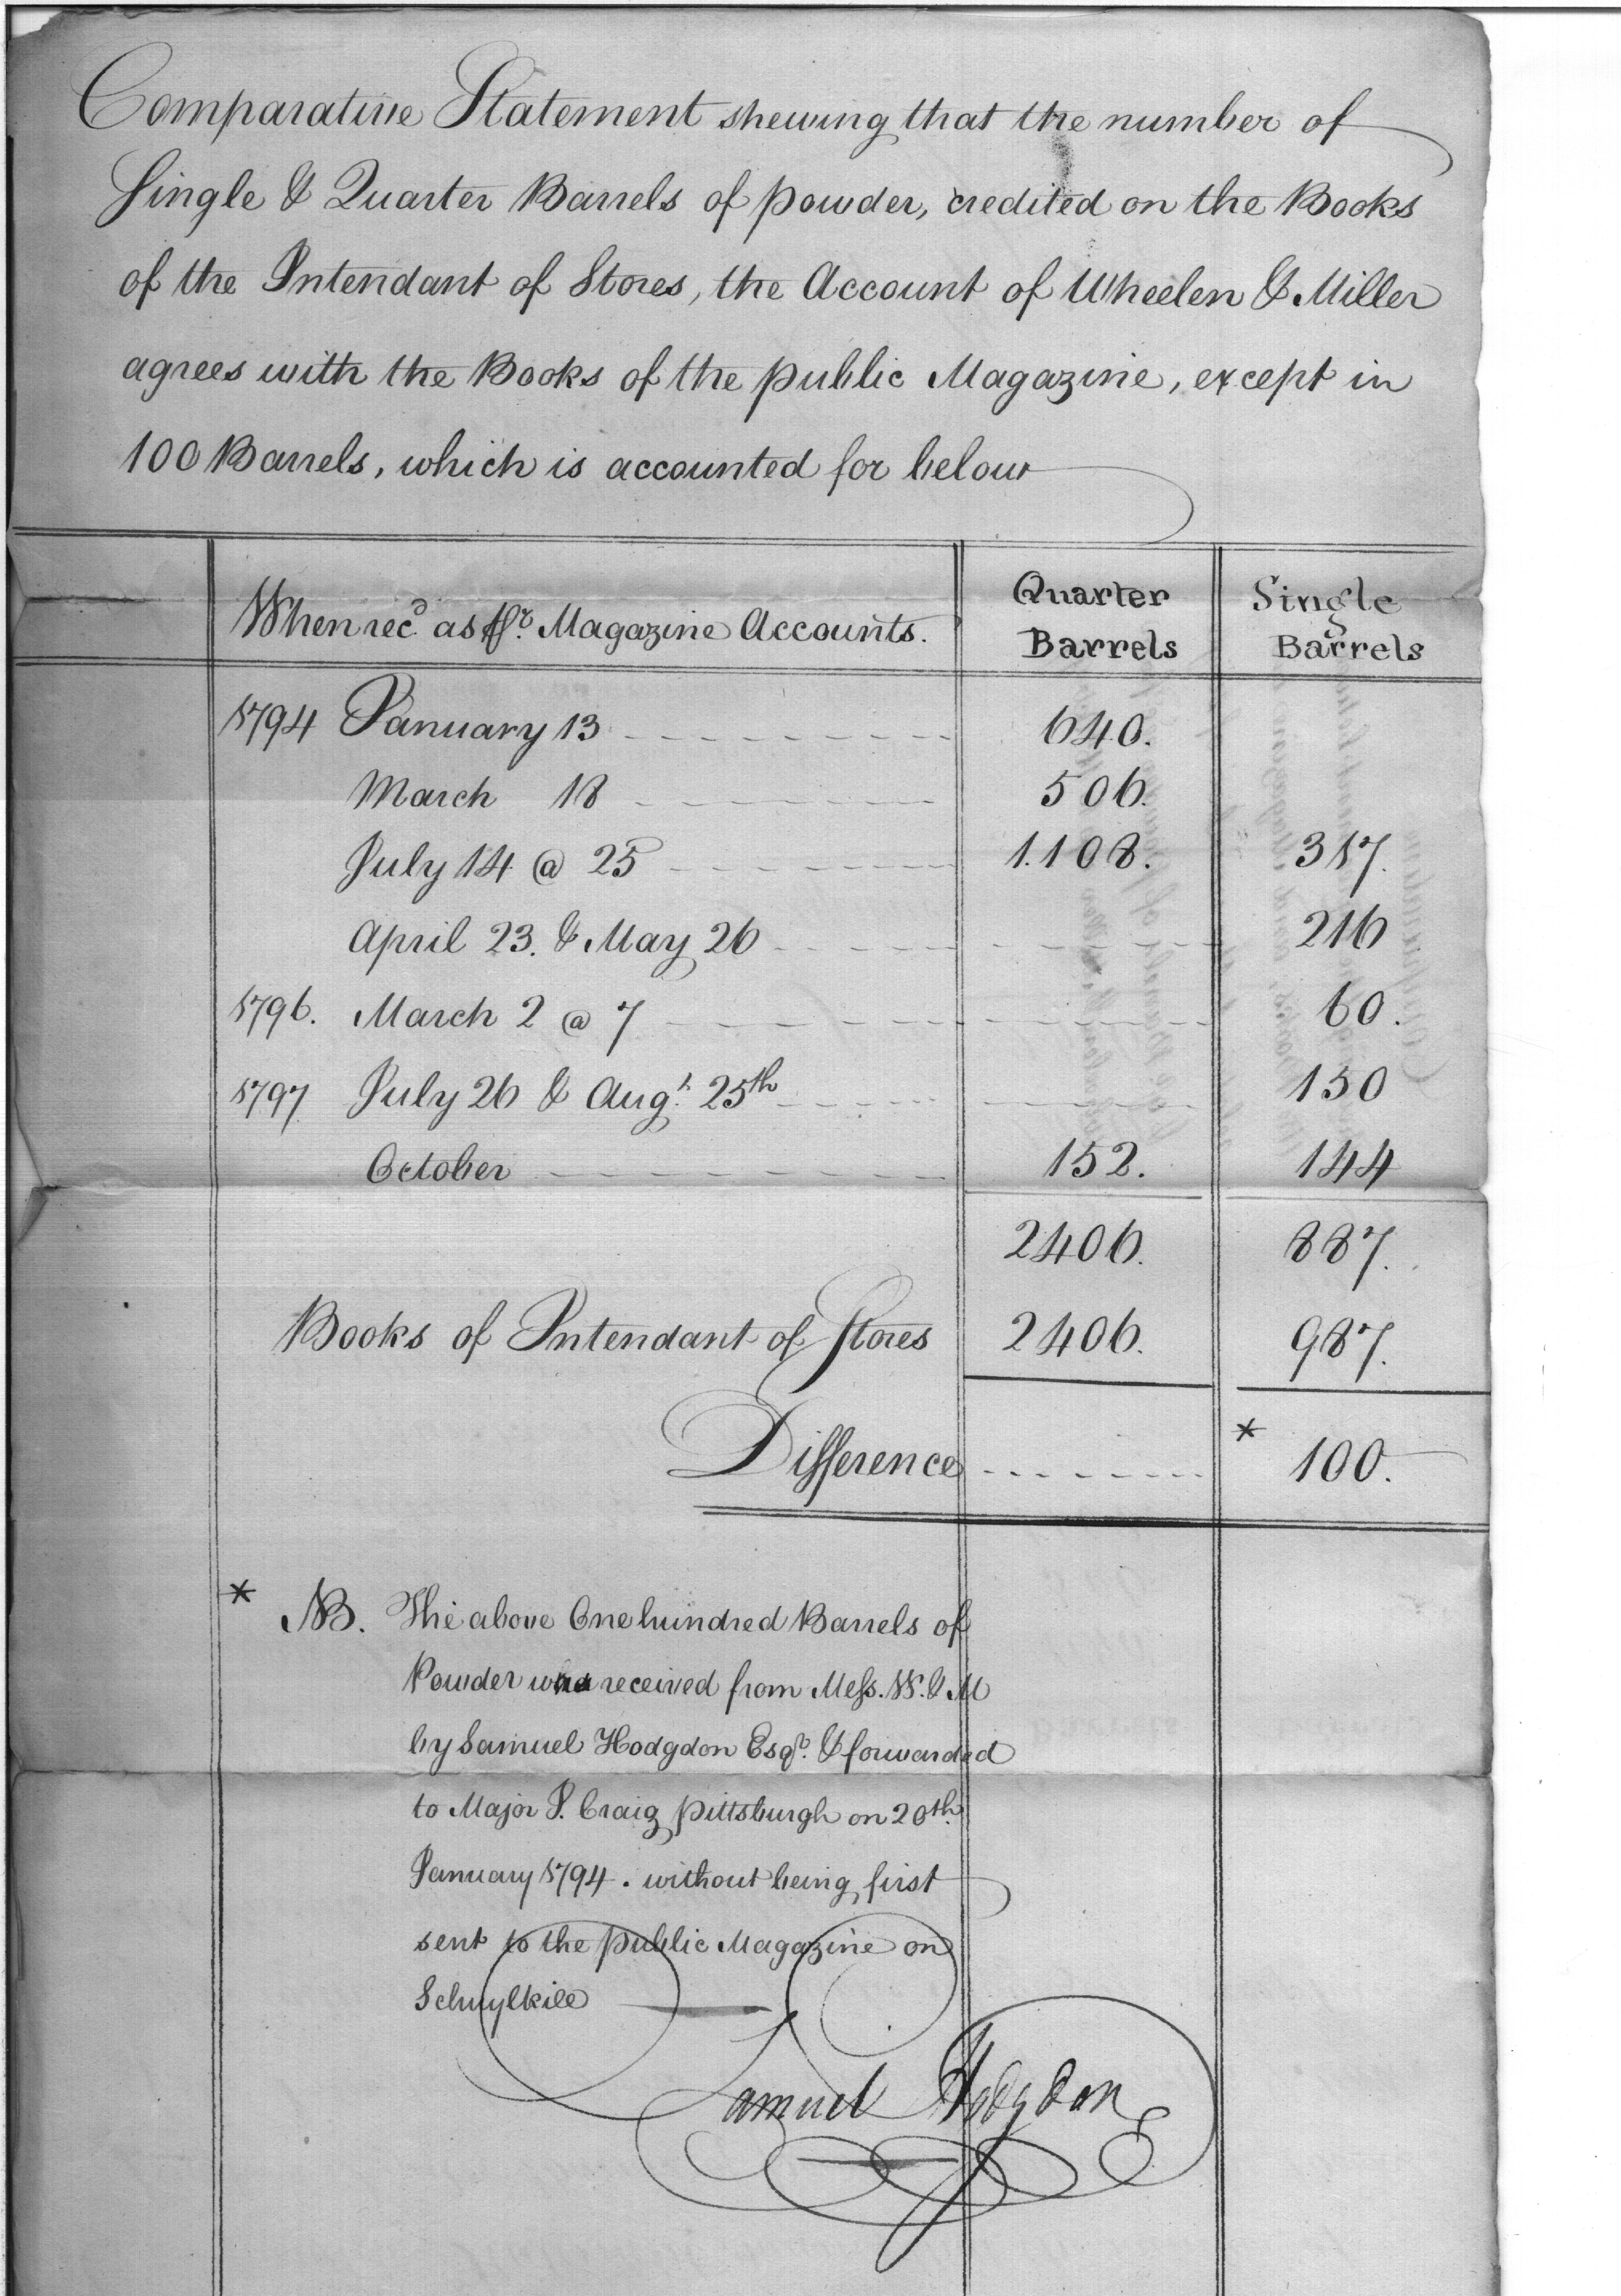 Comparative Statement shewing that the number of
Single & Quarter Barrels of powder, credited on the Books
of the Intendant of Stores, the Account of Wheelen & Miller
agrees with the Books of the public Magazine, except in
100 Barrels, which is accounted for below
When recd. as pr. Magazine Accounts. Quarter Barrels Single Barrels
1794 January 13 640.
March 18 506.
July 14 @ 25 1.108. 317.
April 23. & May 26 216
1796. March 2 @ 7 60.
1797 July 26 & Augt. 25th 150
October 152. 144
2406. 887.
Books of Intendant of Stores 2406. 987.
Difference * 100.
* NB. The above One hundred Barrels of
Powder was received from Mess. W. & M
by Samuel Hodgdon Esqr. & forwarded
to Major I. Craig pittsburgh on 20th.
January 1794. without being first
sent to the public Magazine on
Schuylkill
Samuel Hodgdon